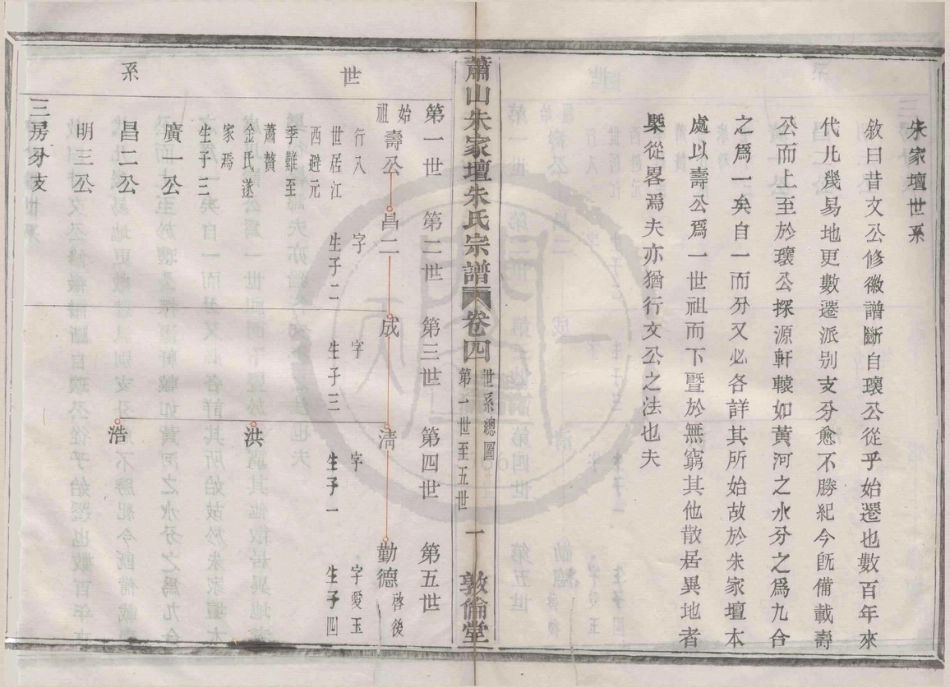 朱家壇世系
敘曰昔文公修徽譜斷自瓌公從乎始遷也數百年來
代凡幾易地更數遷派别支分愈不勝紀今旣備載壽
公而上至於瓌公探源軒轅如黃河之水分之爲九合
之爲一矣自一而分又必各詳其所始故於朱家壇本
處以壽公爲一世祖而下暨於無窮其他散居異地者
槩從畧焉夫亦猶行文公之法也夫
蕭山朱家壇朱氏宗譜
卷四
世系總圖
第一世至五世
一
敦倫堂
世
系
第一世
第二世
第三世
第四世
第五世
始祖
壽公
昌二
成
淸
勤德
啓後
行入
世居江
西避元
季難至
蕭贅
金氏遂
家焉
生子三
字
生子二
字
生子三
字
生子一
字愛玉
生子四
廣一公
洪
昌二公
浩
明三公
三房分支